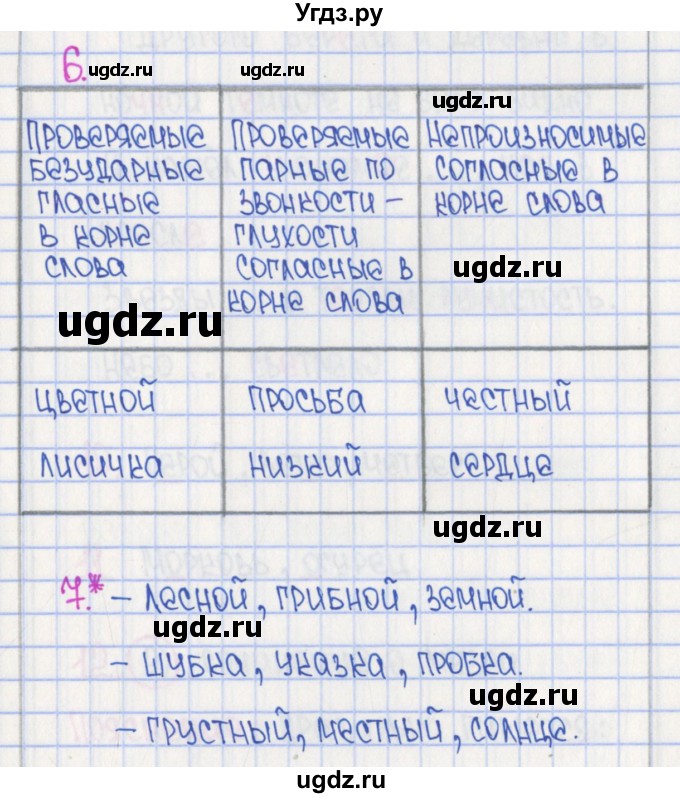 Угдз.ру
6. ugdz.ru ugdz.ru
ugdz.ru
Проверяемые
безударные
гласные
в корне
слова
Проверяемые
парные по
звонкости –
глухости
согласные в
корне слова
Непроизносимые
согласные в
корне слова
ugdz.ru
ugdz.ru
цветной просьба честный
лисичка низкий сердце
ugdz.ru
7.* – лесной, грибной, земной.
ugdz.ru
– шубка, указка, пробка.
ugdz.ru
– грустный, местный, солнце.
ugdz.ru